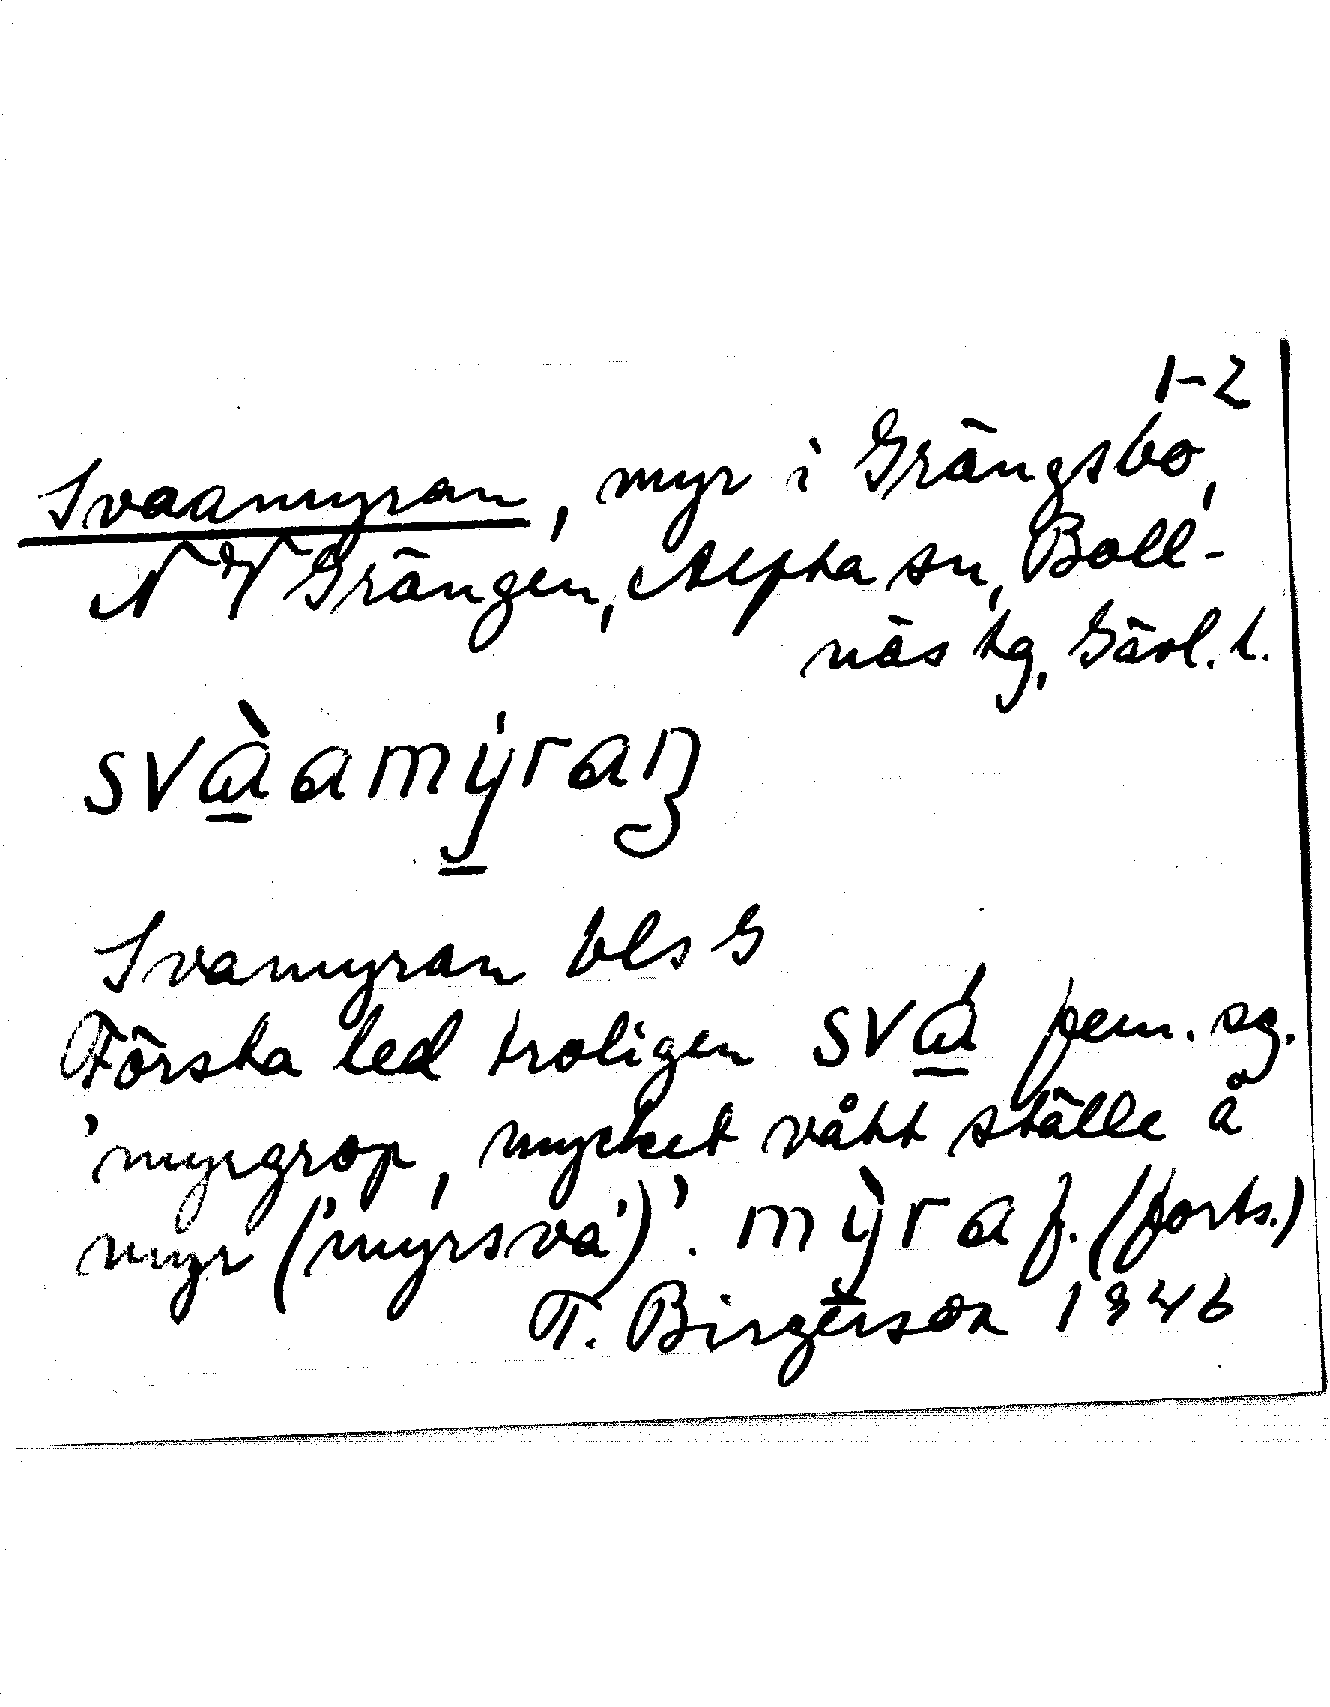 1-2
Svaamyran, myr i Grängsbo,
NV Grängen, Alfta sn, Boll-
näs tg, Gävl. l.
svàamýran
Svamyran bls G
Första led troligen svá fem. sg.
'myrgrop, mycket vått ställe å
myr ('myrsva')'. mỳra f. (forts.)
T. Birgerson 1946